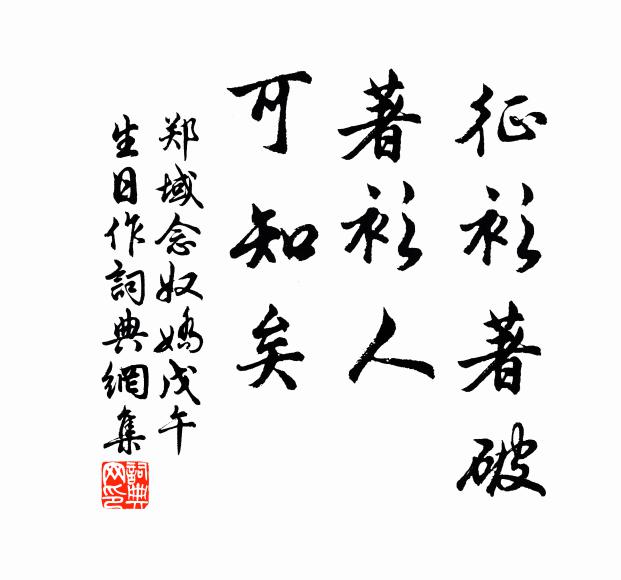 征衫著破
著衫人
可知矣
郑域念奴嬌戊午
生日作詞典網集
詞典
网印